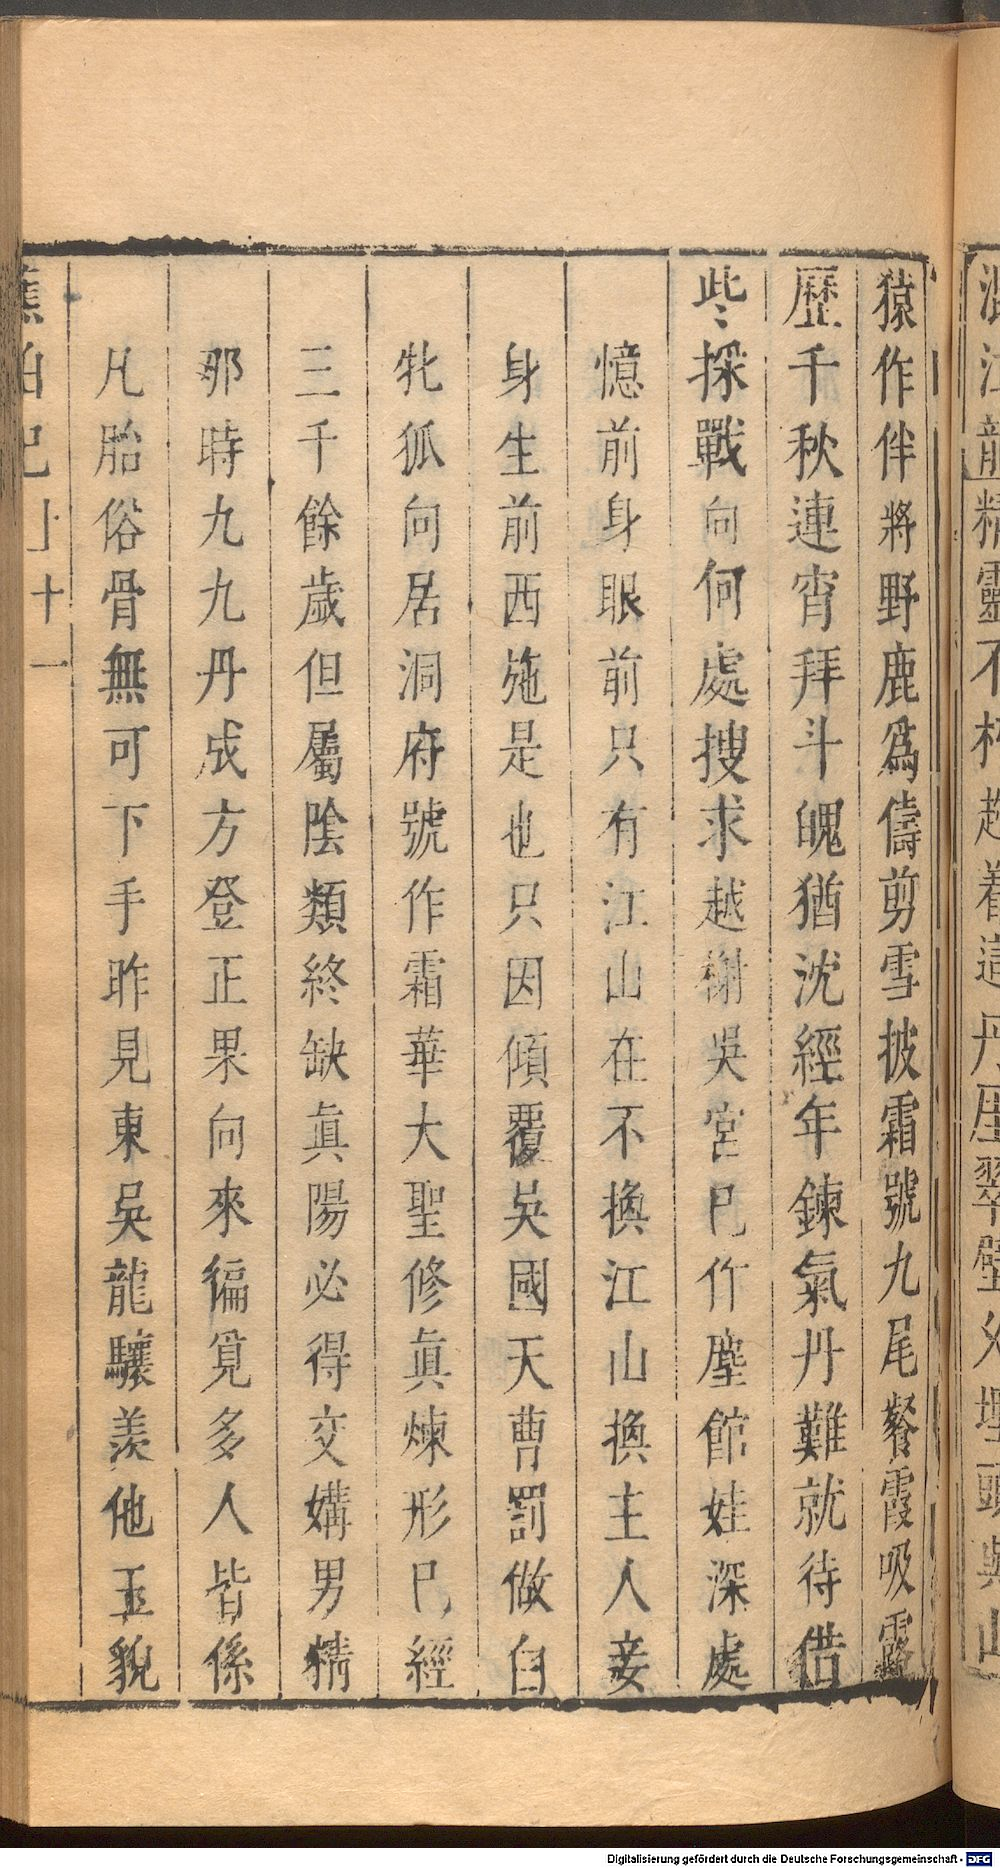 猿作伴將野鹿爲儔剪雪披霜號九尾餐霞吸露
歷千秋連宵拜斗魄猶沈經年鍊氣丹難就待借
些〻採戰向何處搜求越榭吳宮巳作塵館娃深處
憶前身眼前只有江山在不換江山換主人妾
身生前西施是也只因傾覆吳國天曹罰做白
牝狐向居洞府號作霜華大聖修眞煉形巳經
三千餘歲但屬陰類終缺眞陽必得交媾男精
那時九九丹成方登正果向來徧覓多人皆係
凡胎俗骨無可下手昨見東吳龍驤羨他玉貌
蕉帕記 上 十一
Digitalisierung gefördert durch die Deutsche Forschungsgemeinschaft - DFG